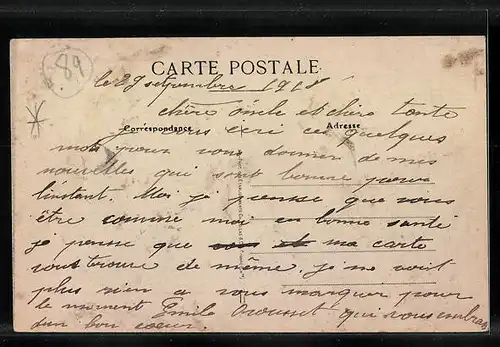 89
CARTE POSTALE
le 29 septembre 1918
chère oncle et chère tante
Correspondance
Adresse
je vous ecri ces quelques
mots pour vous donner de mes
nouvelles qui sont bonne pour
l'instant. Moi j pense que vous
être comme moi en bonne santé
je pense que ma carte
vous trouve de même. je ne voit
plus rien a vous marquer pour
le moment Emile qui vous embras
d'un bon coeur.